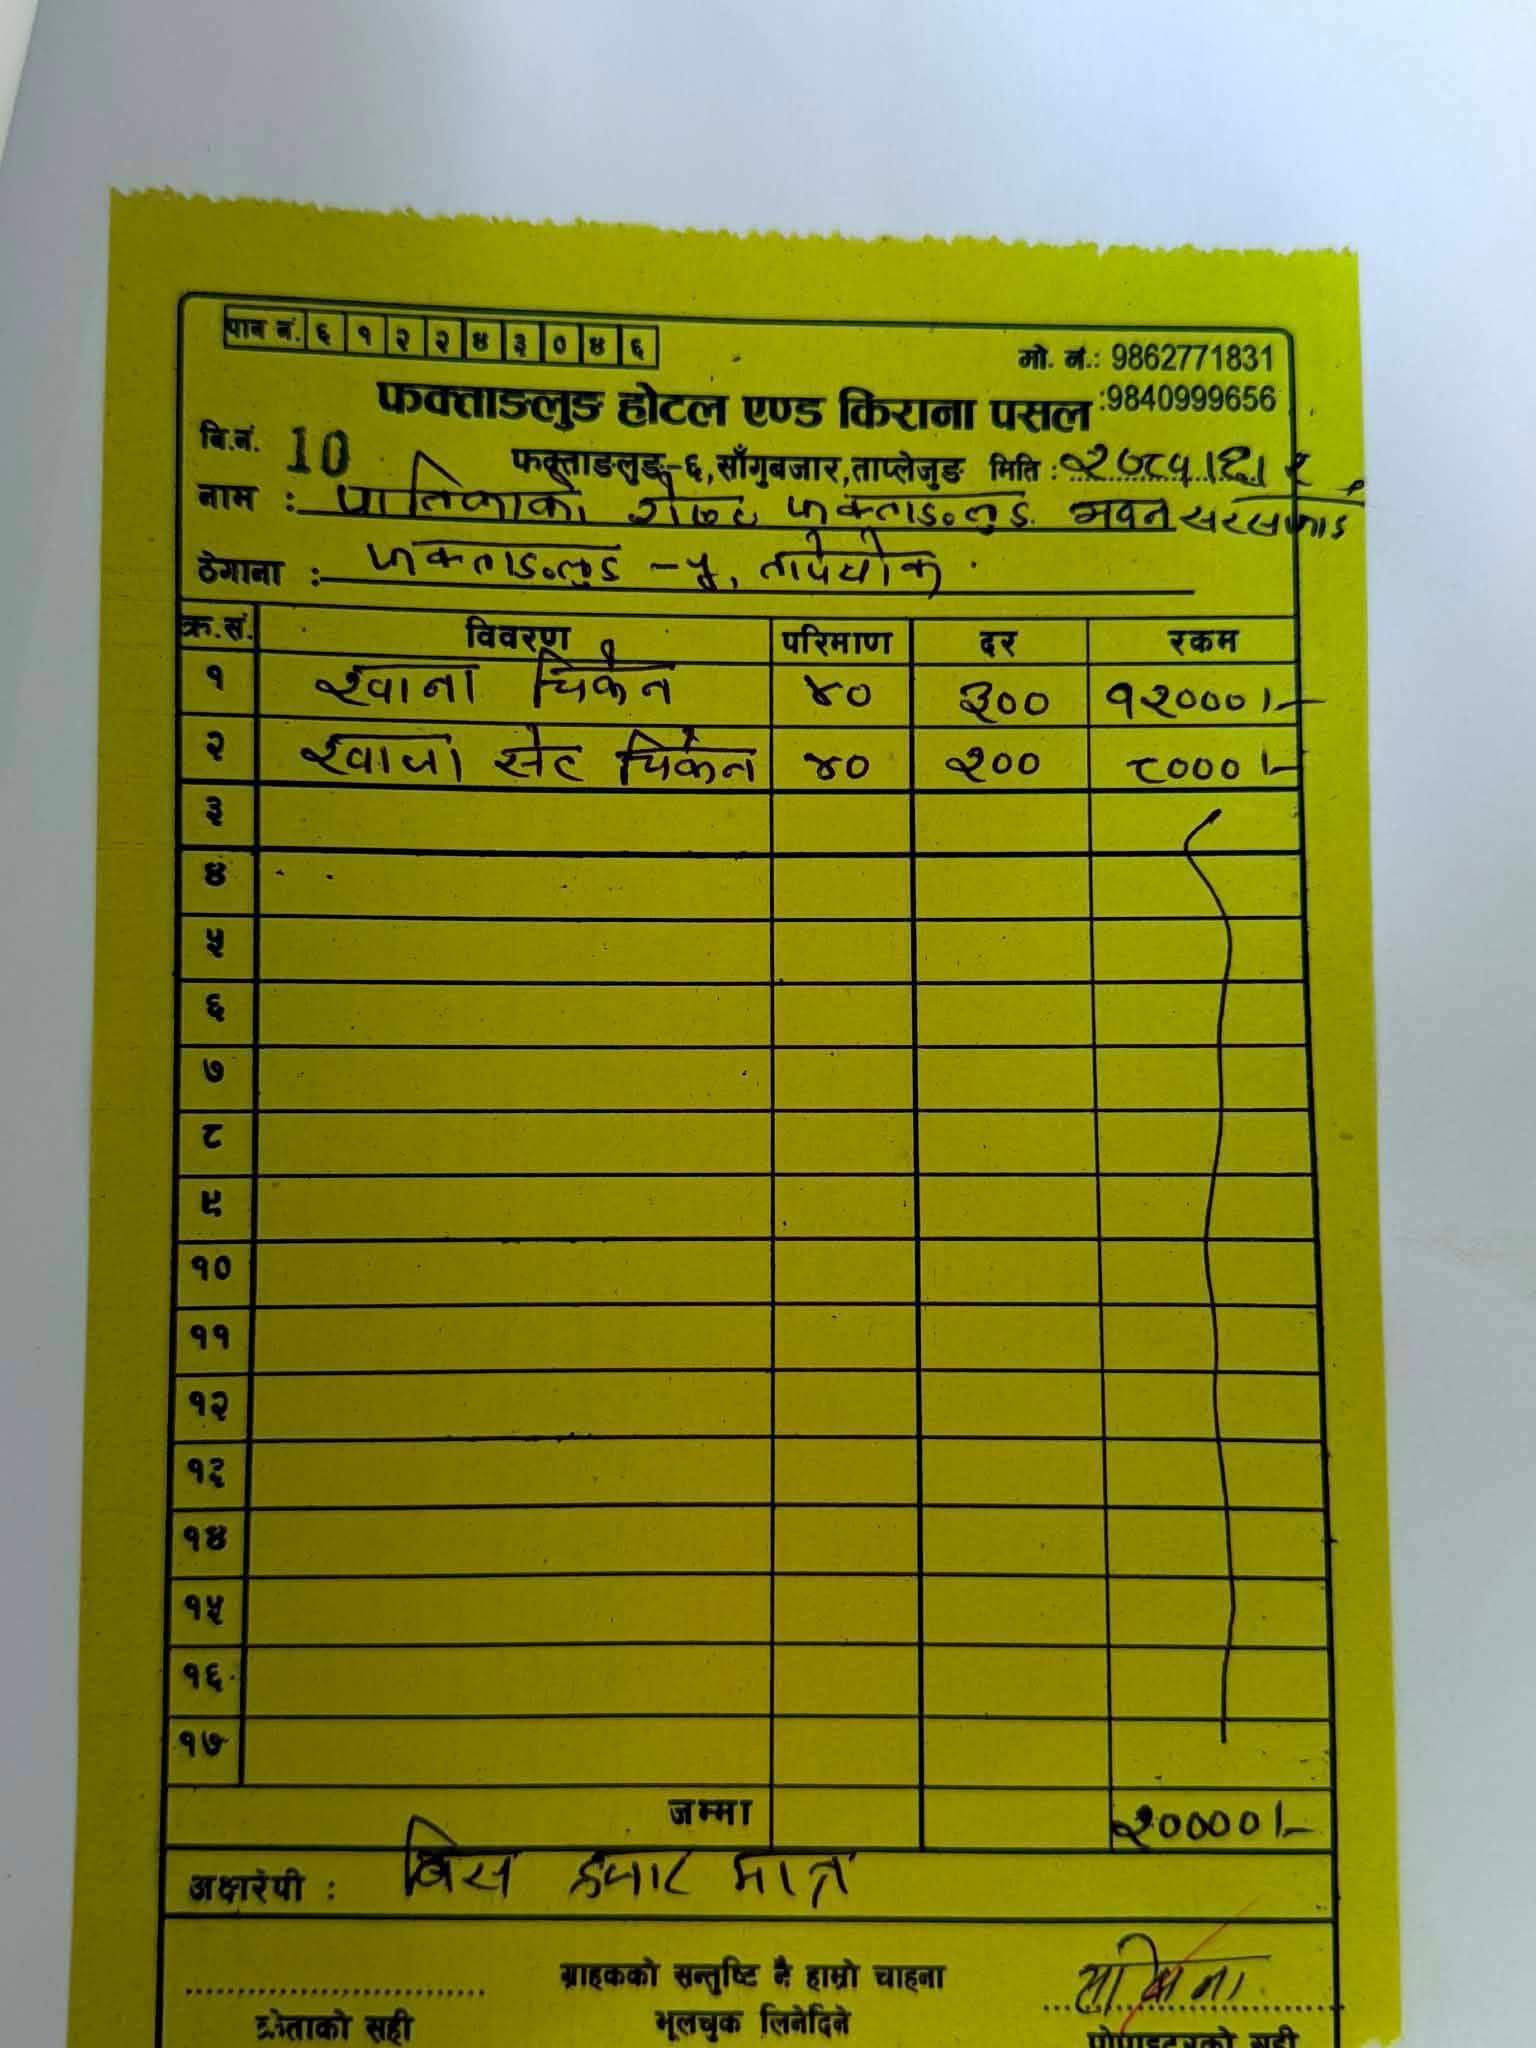 पान नं. ६ १ २ २ ४ ३ ० ४ ६
मो. नं.: 9862771831
:9840999656
फक्ताङलुङ होटल एण्ड किराना पसल
बि.नं. 10
फक्ताङलुङ-६, साँगुबजार, ताप्लेजुङ मिति : २०८१।६।२
नाम : फक्ताङलुङ भवन
ठेगाना : फक्ताङलुङ -५,
क्र.सं. विवरण परिमाण दर रकम
१ खाना चिकेन ४० ३०० १२०००।-
२ खाजा सेट चिकेन ४० २०० ८०००।-
३
४
५
६
७
८
९
१०
११
१२
१३
१४
१५
१६
१७
जम्मा २००००।-
अक्षरेपी : बिस हजार मात्र
ग्राहकको सन्तुष्टि नै हाम्रो चाहना
क्रेताको सही भूलचुक लिनेदिने प्रोपाइटरको सही